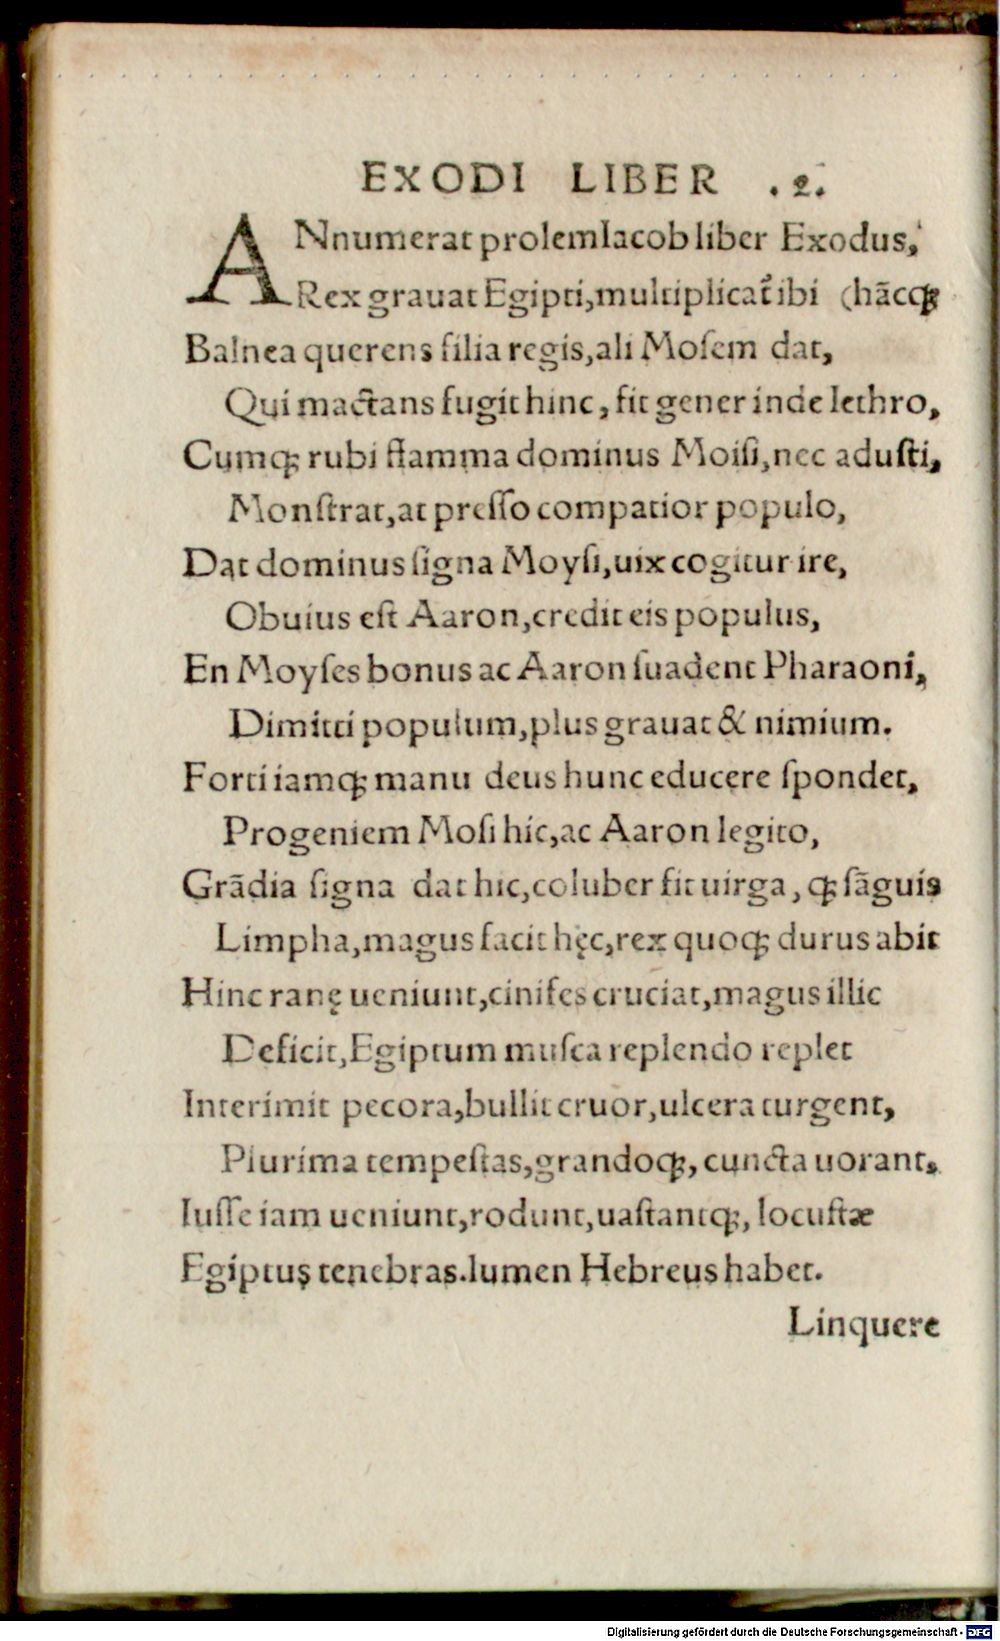 EXODI LIBER .2.
ANnumerat prolemIacob liber Exodus,
Rex grauat Egipti,multiplicat᷑ ibi (hācq́ꝫ
Balnea querens filia regis,ali Mosem dat,
Qui mactans fugit hinc, fit gener inde Iethro,
Cumqꝫ rubi flamma dominus Moisi,nec adusti,
Monstrat,at presso compatior populo,
Dat dominus signa Moysi,uix cogitur ire,
Obuius est Aaron,credit eis populus,
En Moyses bonus ac Aaron suadent Pharaoni,
Dimitti populum,plus grauat & nimium.
Forti iamqꝫ manu deus hunc educere spondet,
Progeniem Mosi hic,ac Aaron legito,
Grādia signa dat hic,coluber fit uirga, qꝫ sāguis
Limpha,magus facit hęc,rex quoqꝫ durus abit
Hinc ranę ueniunt,cinifes cruciat,magus illic
Deficit,Egiptum musca replendo replet
Interimit pecora,bullit cruor,ulcera turgent,
Plurima tempestas,grandoqꝫ, cuncta uorant.
Iusse iam ueniunt,rodunt,uastantqꝫ, locustæ
Egiptus tenebras.lumen Hebreus habet.
Linquere
Digitalisierung gefördert durch die Deutsche Forschungsgemeinschaft - DFG